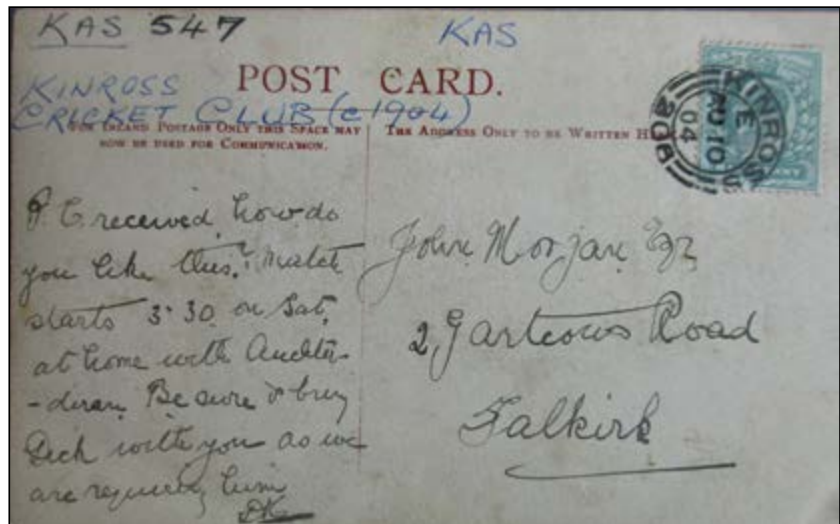 KAS 547
KAS
KINROSS
CRICKET CLUB (c 1904)
POST CARD.
FOR INLAND POSTAGE ONLY THIS SPACE MAY
NOW BE USED FOR COMMUNICATION.
THE ADDRESS ONLY TO BE WRITTEN H
KINROSS
E
AU 10
04
P. C. received, how do
you like this? Match
starts 3.30 on Sat,
at home with Auchter-
-derran Be sure & bring
Dick with you as we
are requiring him
DK
John Morgan Esq
2, Gartcows Road
Falkirk